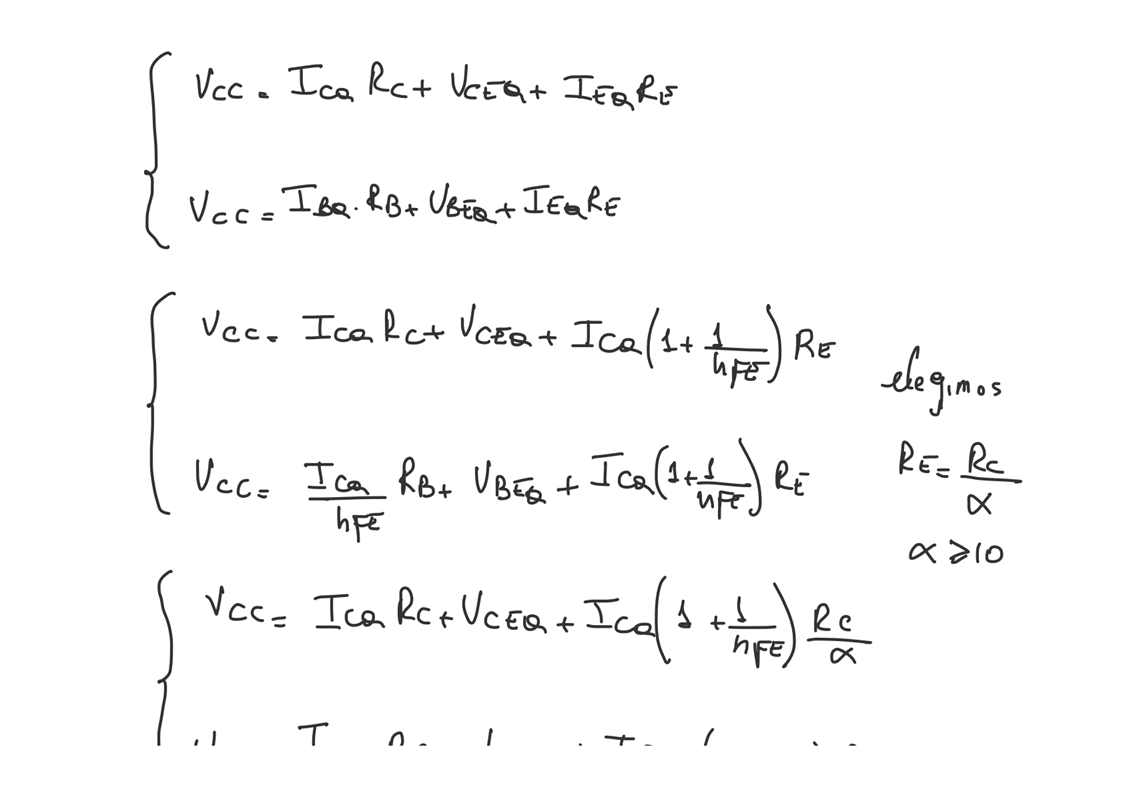 VCC = ICQ RC + VCEQ + IEQ RE
VCC = IBQ · RB + VBEQ + IEQ RE
VCC = ICQ RC + VCEQ + ICQ (1 + 1/hFE) RE
elegimos
VCC = ICQ/hFE RB + VBEQ + ICQ (1 + 1/hFE) RE
RE = RC/α
α ≥ 10
VCC = ICQ RC + VCEQ + ICQ (1 + 1/hFE) RC/α